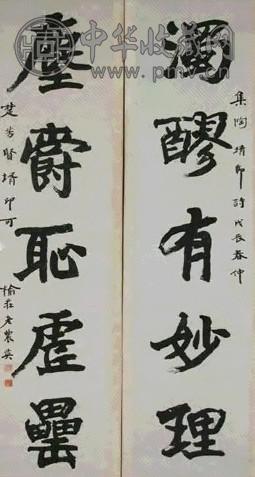 中华收藏网
www.pmv.cn
集陶靖節詩戊辰春仲
濁醪有妙理
塵爵恥虛罍
賢壻印可
榆莊老農